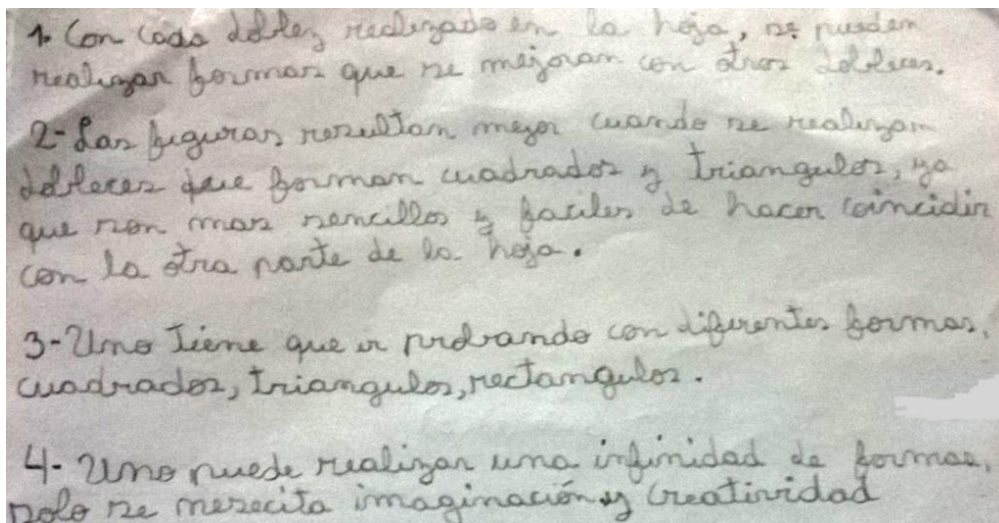 1. Con cada doblez realizado en la hoja, se pueden
realizar formas que se mejoran con otros dobleces.
2- Las figuras resultan mejor cuando se realizan
dobleces que forman cuadrados y triangulos, ya
que son mas sencillos y faciles de hacer coincidir
con la otra parte de la hoja.
3- Uno tiene que ir probando con diferentes formas,
cuadrados, triangulos, rectangulos.
4- Uno puede realizar una infinidad de formas,
solo se necesita imaginación y creatividad